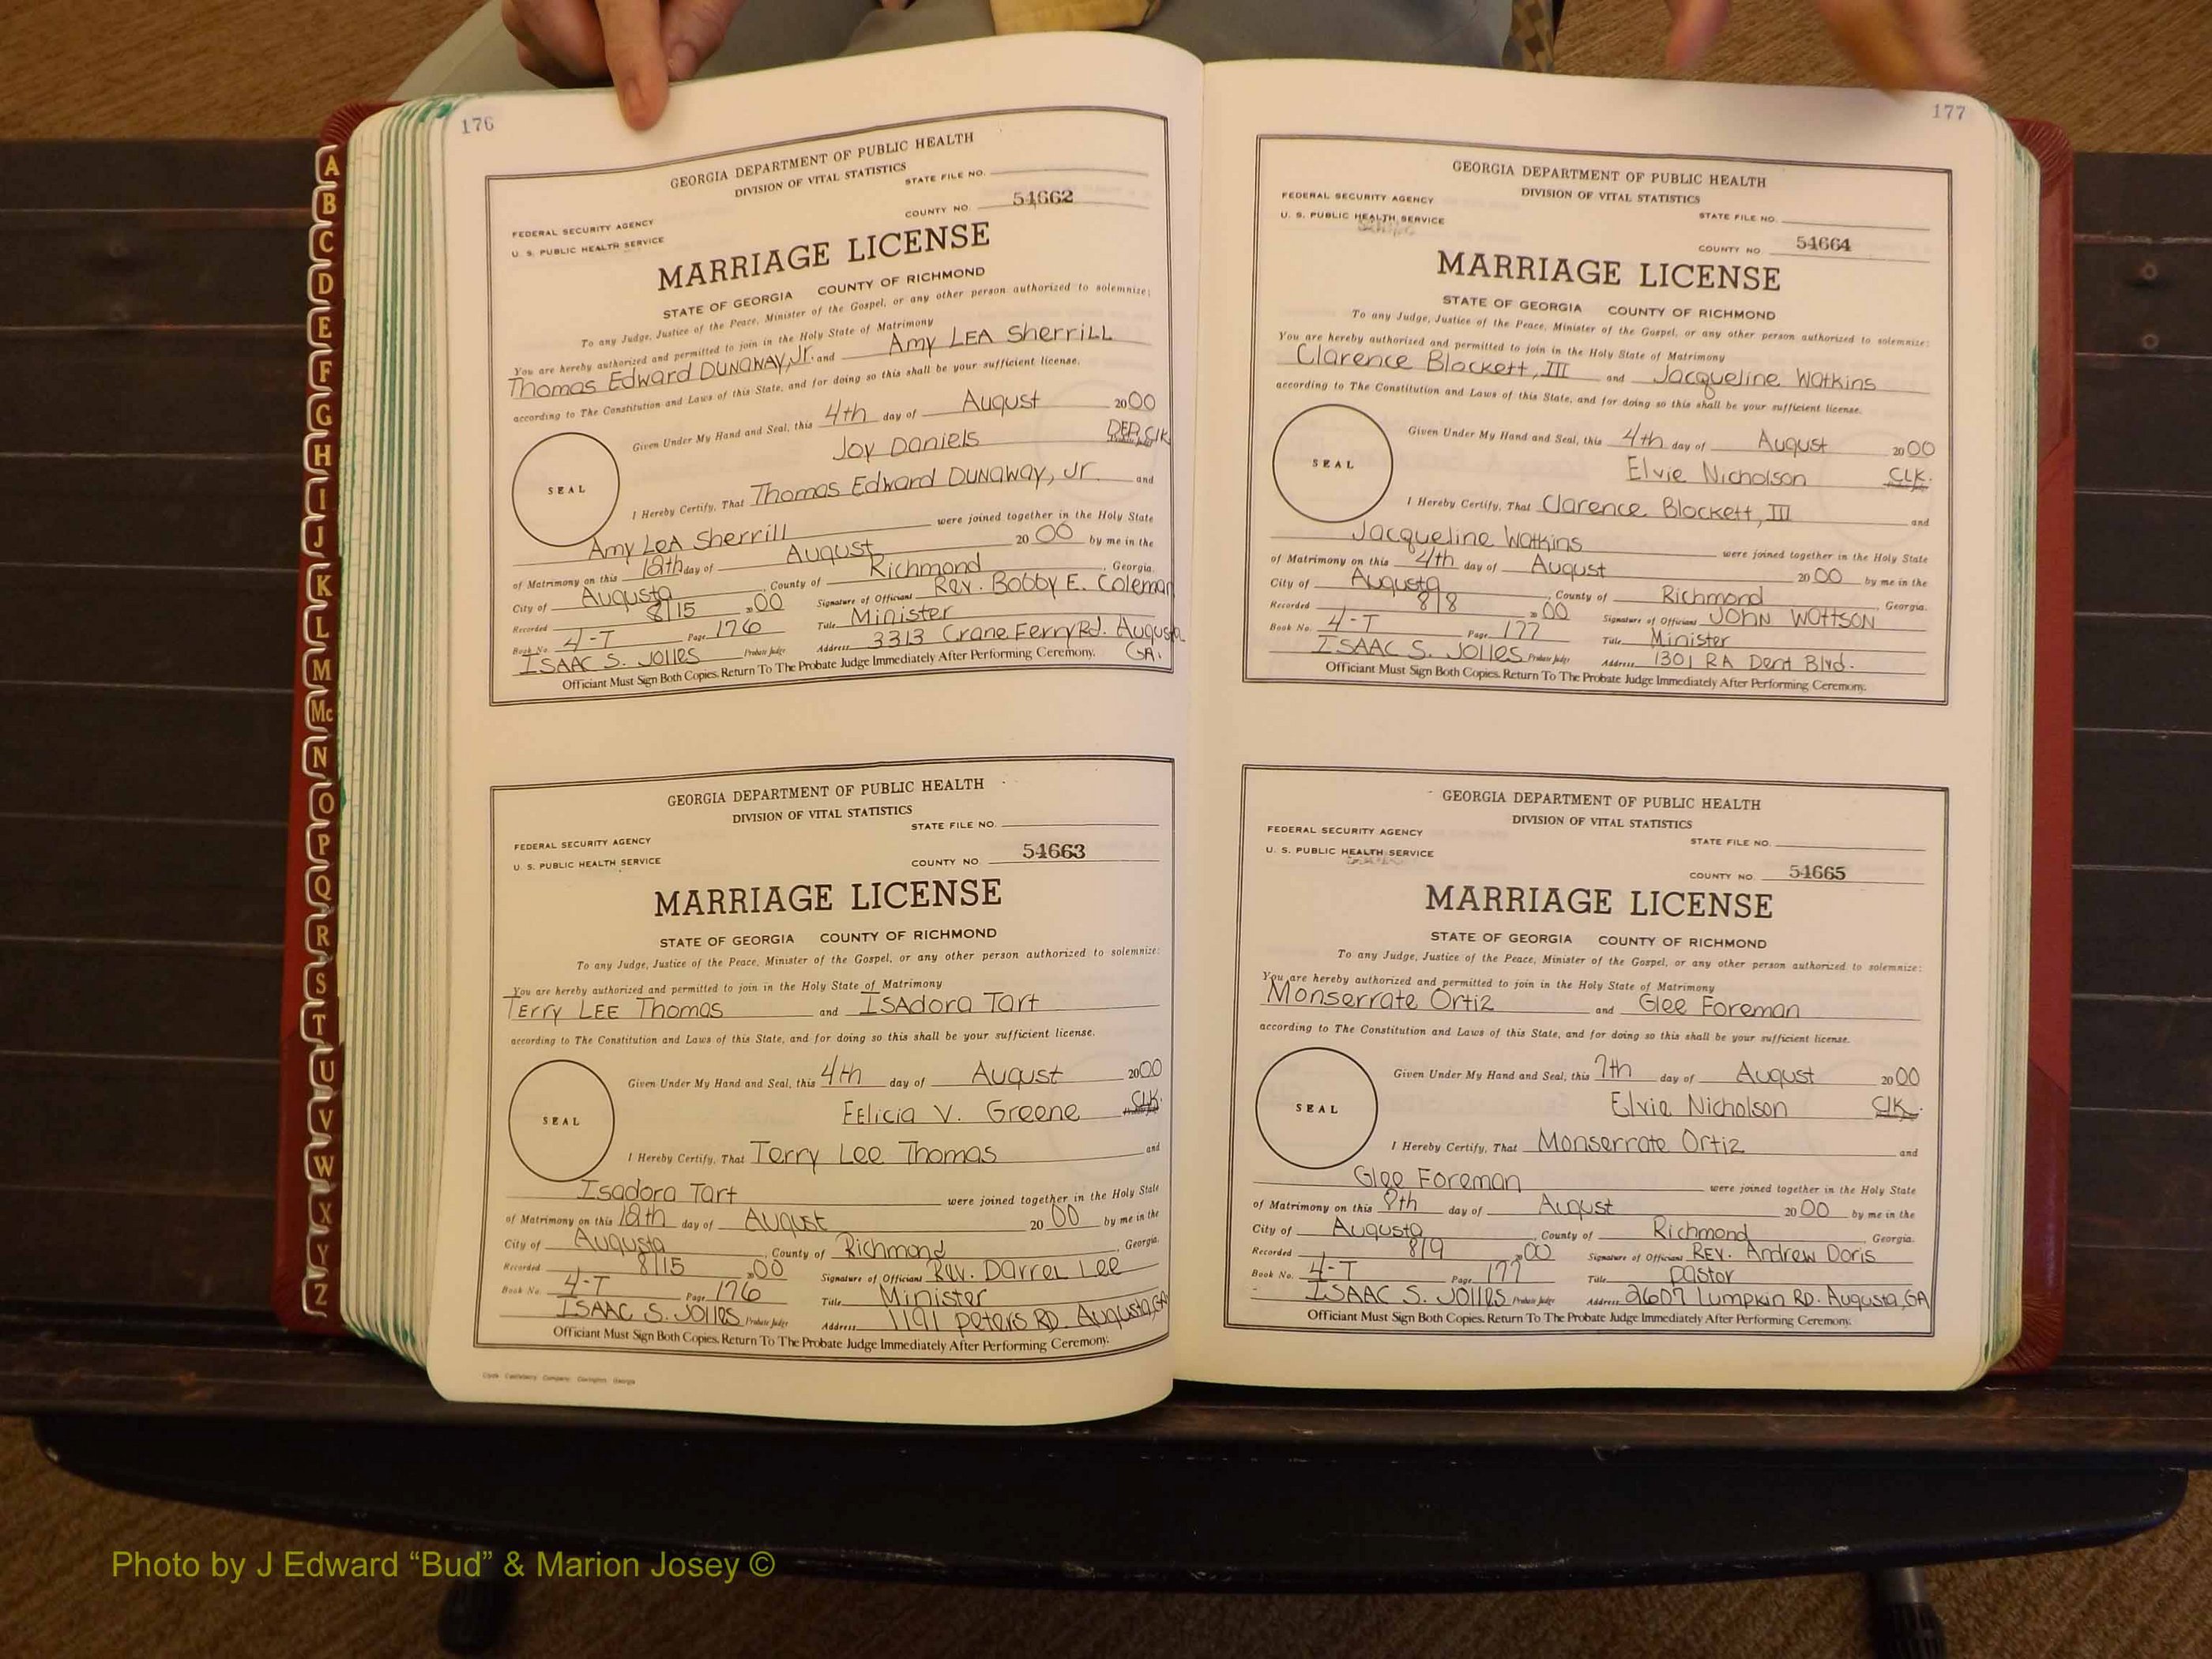 176
GEORGIA DEPARTMENT OF PUBLIC HEALTH
DIVISION OF VITAL STATISTICS
STATE FILE NO.
FEDERAL SECURITY AGENCY
U. S. PUBLIC HEALTH SERVICE
COUNTY NO. 54662
MARRIAGE LICENSE
STATE OF GEORGIA COUNTY OF RICHMOND
To any Judge, Justice of the Peace, Minister of the Gospel, or any other person authorized to solemnize:
You are hereby authorized and permitted to join in the Holy State of Matrimony
Thomas Edward DUNAWAY, Jr. and Amy LEA SherriLL
according to The Constitution and Laws of this State, and for doing so this shall be your sufficient license.
Given Under My Hand and Seal, this 4th day of August 2000
Joy Daniels DEP. CLK
SEAL
I Hereby Certify, That Thomas Edward DUNAWAY, Jr. and
Amy LEA Sherrill were joined together in the Holy State
of Matrimony on this 12th day of August 20 00 by me in the
City of Augusta, County of Richmond, Georgia.
Recorded 8/15 00 Signature of Officiant Rev. Bobby E. Coleman
Book No. 4-T Page 176 Title Minister
ISAAC S. JOLLES Probate Judge Address 3313 Crane Ferry Rd. Augusta
GA.
Officiant Must Sign Both Copies. Return To The Probate Judge Immediately After Performing Ceremony.
GEORGIA DEPARTMENT OF PUBLIC HEALTH
DIVISION OF VITAL STATISTICS
STATE FILE NO.
FEDERAL SECURITY AGENCY
U. S. PUBLIC HEALTH SERVICE
COUNTY NO. 54663
MARRIAGE LICENSE
STATE OF GEORGIA COUNTY OF RICHMOND
To any Judge, Justice of the Peace, Minister of the Gospel, or any other person authorized to solemnize:
You are hereby authorized and permitted to join in the Holy State of Matrimony
Terry LEE Thomas and ISAdora Tart
according to The Constitution and Laws of this State, and for doing so this shall be your sufficient license.
Given Under My Hand and Seal, this 4th day of August 2000
FElicia V. Greene CLK.
SEAL
I Hereby Certify, That Terry Lee Thomas and
Isadora Tart were joined together in the Holy State
of Matrimony on this 12th day of August 20 00 by me in the
City of Augusta, County of Richmond, Georgia.
Recorded 8/15 00 Signature of Officiant Rev. Darrel Lee
Book No. 4-T Page 176 Title Minister
ISAAC S. JOLLES Probate Judge Address 1191 Peters RD. Augusta, GA
Officiant Must Sign Both Copies. Return To The Probate Judge Immediately After Performing Ceremony.
177
GEORGIA DEPARTMENT OF PUBLIC HEALTH
DIVISION OF VITAL STATISTICS
FEDERAL SECURITY AGENCY
U. S. PUBLIC HEALTH SERVICE
STATE FILE NO.
COUNTY NO. 54664
MARRIAGE LICENSE
STATE OF GEORGIA COUNTY OF RICHMOND
To any Judge, Justice of the Peace, Minister of the Gospel, or any other person authorized to solemnize:
You are hereby authorized and permitted to join in the Holy State of Matrimony
Clarence Blockett, III and Jacqueline Watkins
according to The Constitution and Laws of this State, and for doing so this shall be your sufficient license.
Given Under My Hand and Seal, this 4th day of August 2000
Elvie Nicholson CLK.
SEAL
I Hereby Certify, That Clarence Blockett, III and
Jacqueline Watkins were joined together in the Holy State
of Matrimony on this 4th day of August 20 00 by me in the
City of Augusta, County of Richmond, Georgia.
Recorded 8/8 00 Signature of Officiant JOHN WATTSON
Book No. 4-T Page 177 Title Minister
ISAAC S. JOLLES Probate Judge Address 1301 RA Dent Blvd.
Officiant Must Sign Both Copies. Return To The Probate Judge Immediately After Performing Ceremony.
GEORGIA DEPARTMENT OF PUBLIC HEALTH
DIVISION OF VITAL STATISTICS
FEDERAL SECURITY AGENCY
U. S. PUBLIC HEALTH SERVICE
STATE FILE NO.
COUNTY NO. 54665
MARRIAGE LICENSE
STATE OF GEORGIA COUNTY OF RICHMOND
To any Judge, Justice of the Peace, Minister of the Gospel, or any other person authorized to solemnize:
You are hereby authorized and permitted to join in the Holy State of Matrimony
Monserrate Ortiz and Glee Foreman
according to The Constitution and Laws of this State, and for doing so this shall be your sufficient license.
Given Under My Hand and Seal, this 7th day of August 2000
Elvie Nicholson CLK.
SEAL
I Hereby Certify, That Monserrate Ortiz and
Glee Foreman were joined together in the Holy State
of Matrimony on this 8th day of August 20 00 by me in the
City of Augusta, County of Richmond, Georgia.
Recorded 8/9 00 Signature of Officiant REV. Andrew Doris
Book No. 4-T Page 177 Title pastor
ISAAC S. JOLLES Probate Judge Address 2607 Lumpkin RD. Augusta, GA
Officiant Must Sign Both Copies. Return To The Probate Judge Immediately After Performing Ceremony.
A
B
C
D
E
F
G
H
I
J
K
L
M
Mc
N
O
P
Q
R
S
T
U
V
W
X
Y
Z
Photo by J Edward “Bud” & Marion Josey ©